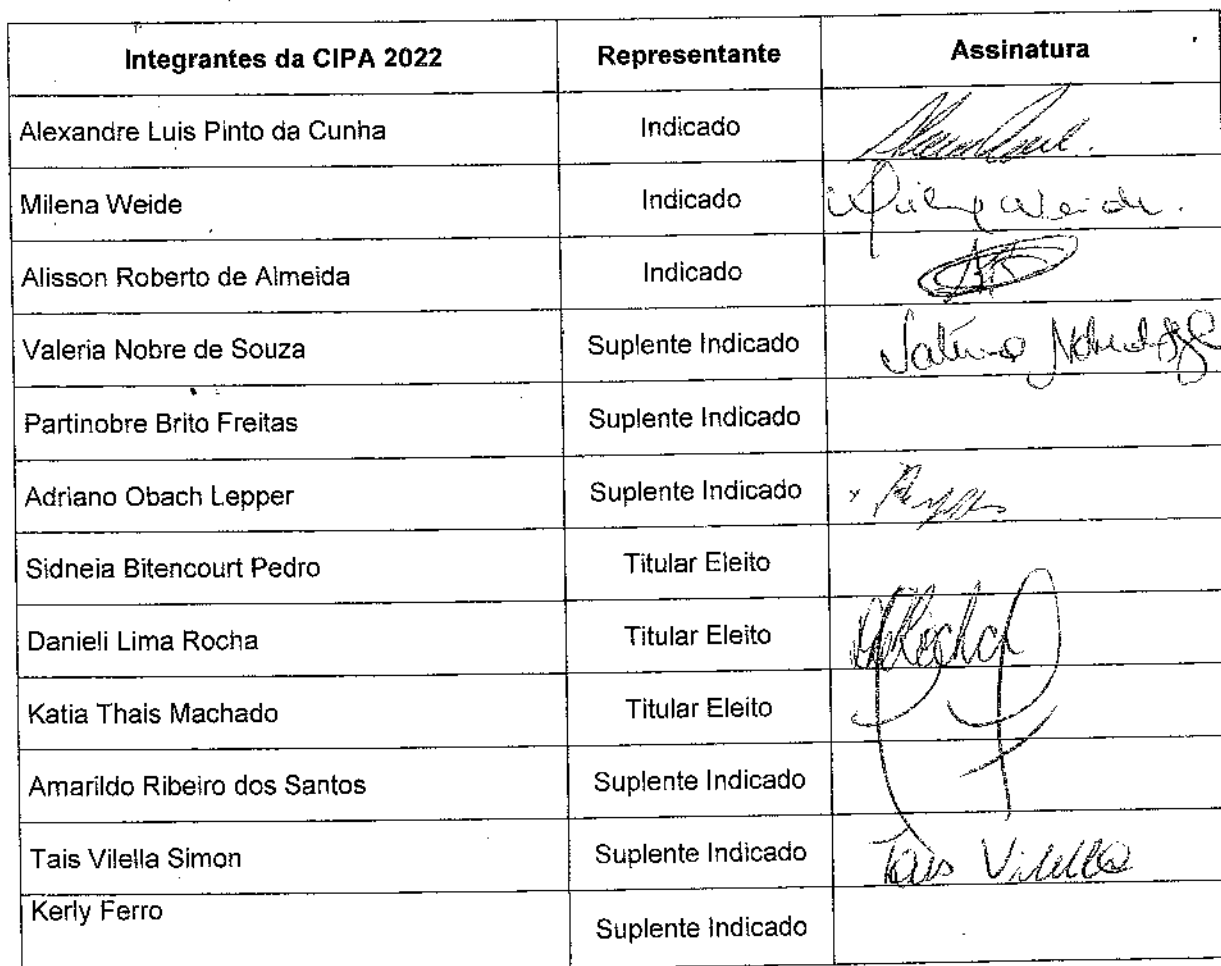 Integrantes da CIPA 2022 Representante Assinatura
Alexandre Luis Pinto da Cunha Indicado
Milena Weide Indicado Milena Weide.
Alisson Roberto de Almeida Indicado
Valeria Nobre de Souza Suplente Indicado
Partinobre Brito Freitas Suplente Indicado
Adriano Obach Lepper Suplente Indicado
Sidneia Bitencourt Pedro Titular Eleito
Danieli Lima Rocha Titular Eleito DRocha
Katia Thais Machado Titular Eleito
Amarildo Ribeiro dos Santos Suplente Indicado
Tais Vilella Simon Suplente Indicado Tais Vilella
Kerly Ferro Suplente Indicado